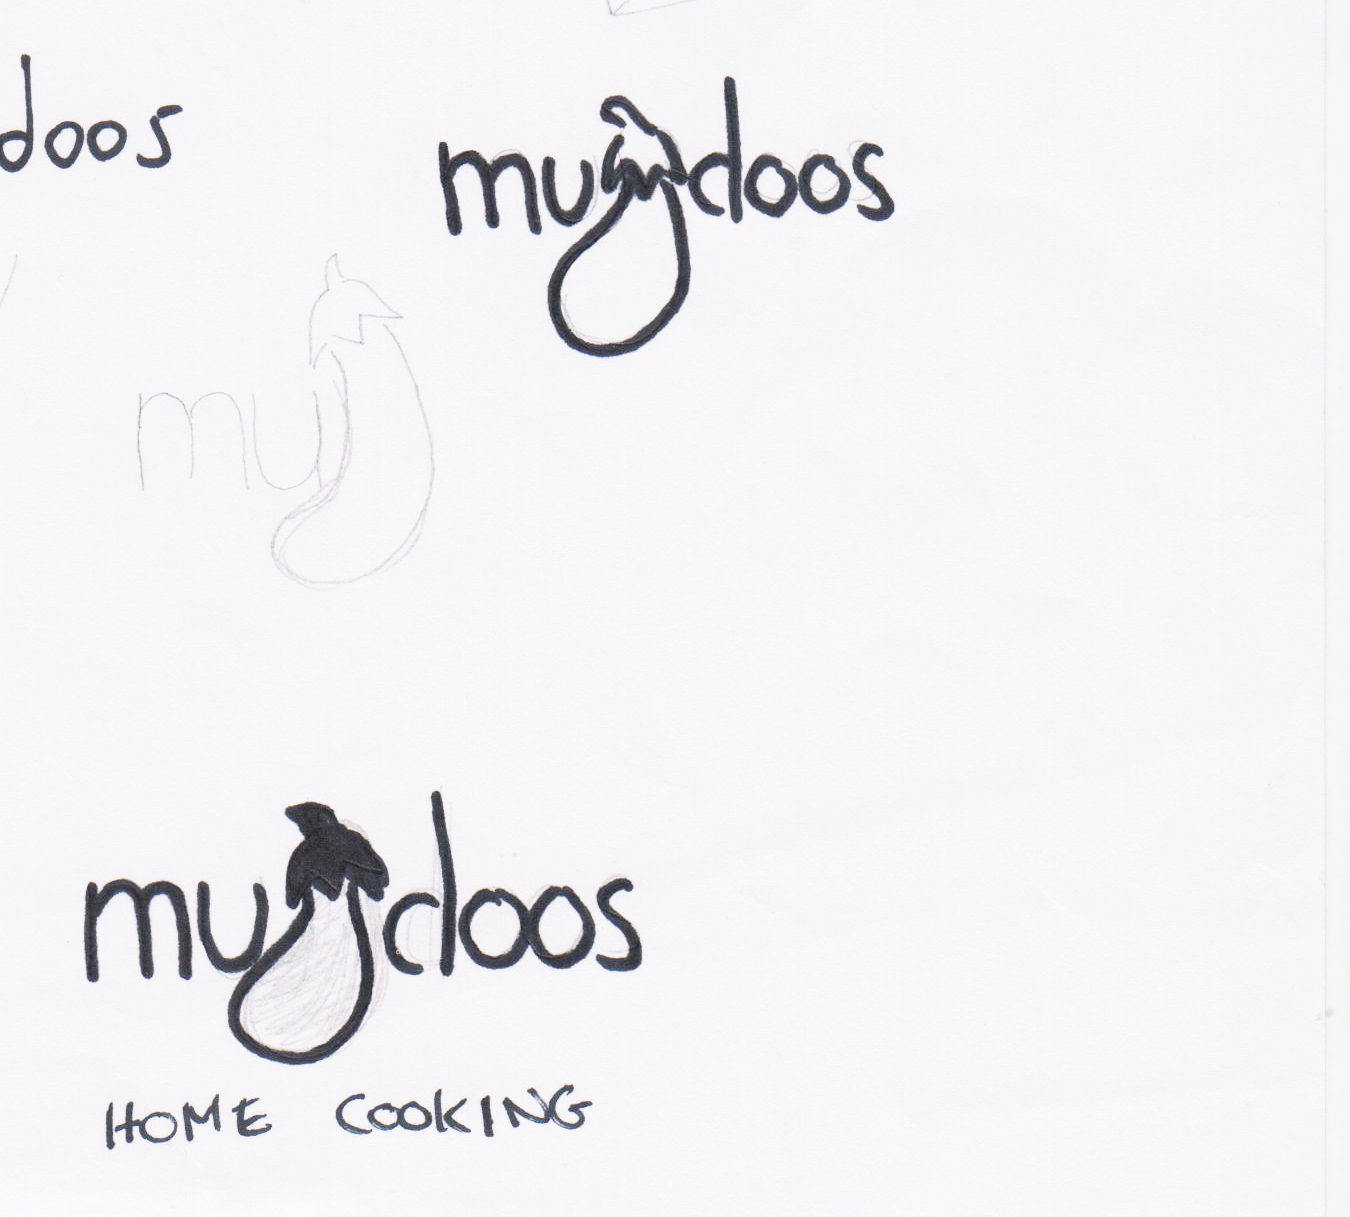 doos
mujdoos
muj
mujdoos
HOME COOKING